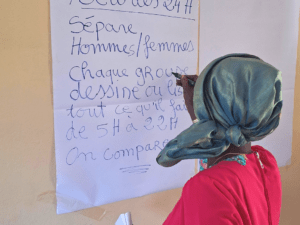 des 24H
Sépare
Hommes/femmes
Chaque groupe
dessine ou
tout ce qu'il fait
de 5H à 22H
On compare